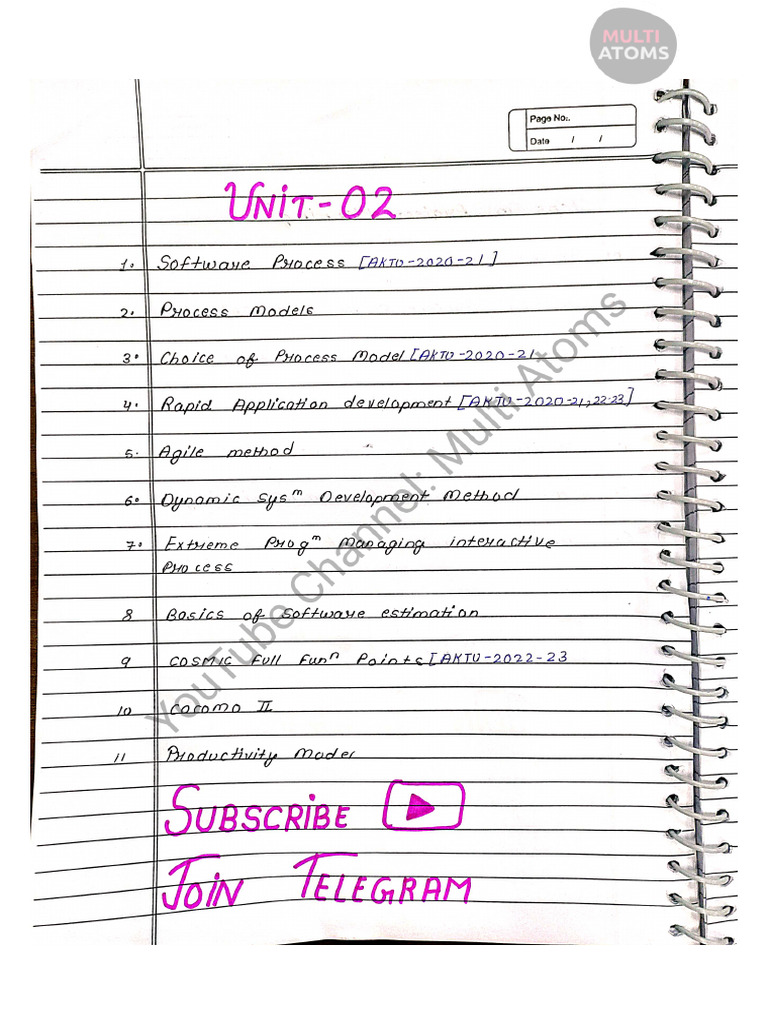 MULTI
ATOMS
Page No:.
Date / /
UNIT-02
1. Software Process [AKTU-2020-21]
2. Process Models
3. Choice of Process Model [AKTU-2020-21
4. Rapid Application development [AKTU-2020-21,22-23]
5. Agile method
6. Dynamic Sysᵐ Development Method
7. Extreme Progᵐ Managing interactive
Process
8 Basics of Software estimation
9 COSMIC Full Funⁿ Points [AKTU-2022-23
10 Cocomo II
11 Productivity Model
SUBSCRIBE
JOIN TELEGRAM
YouTube Channel: Multi Atoms